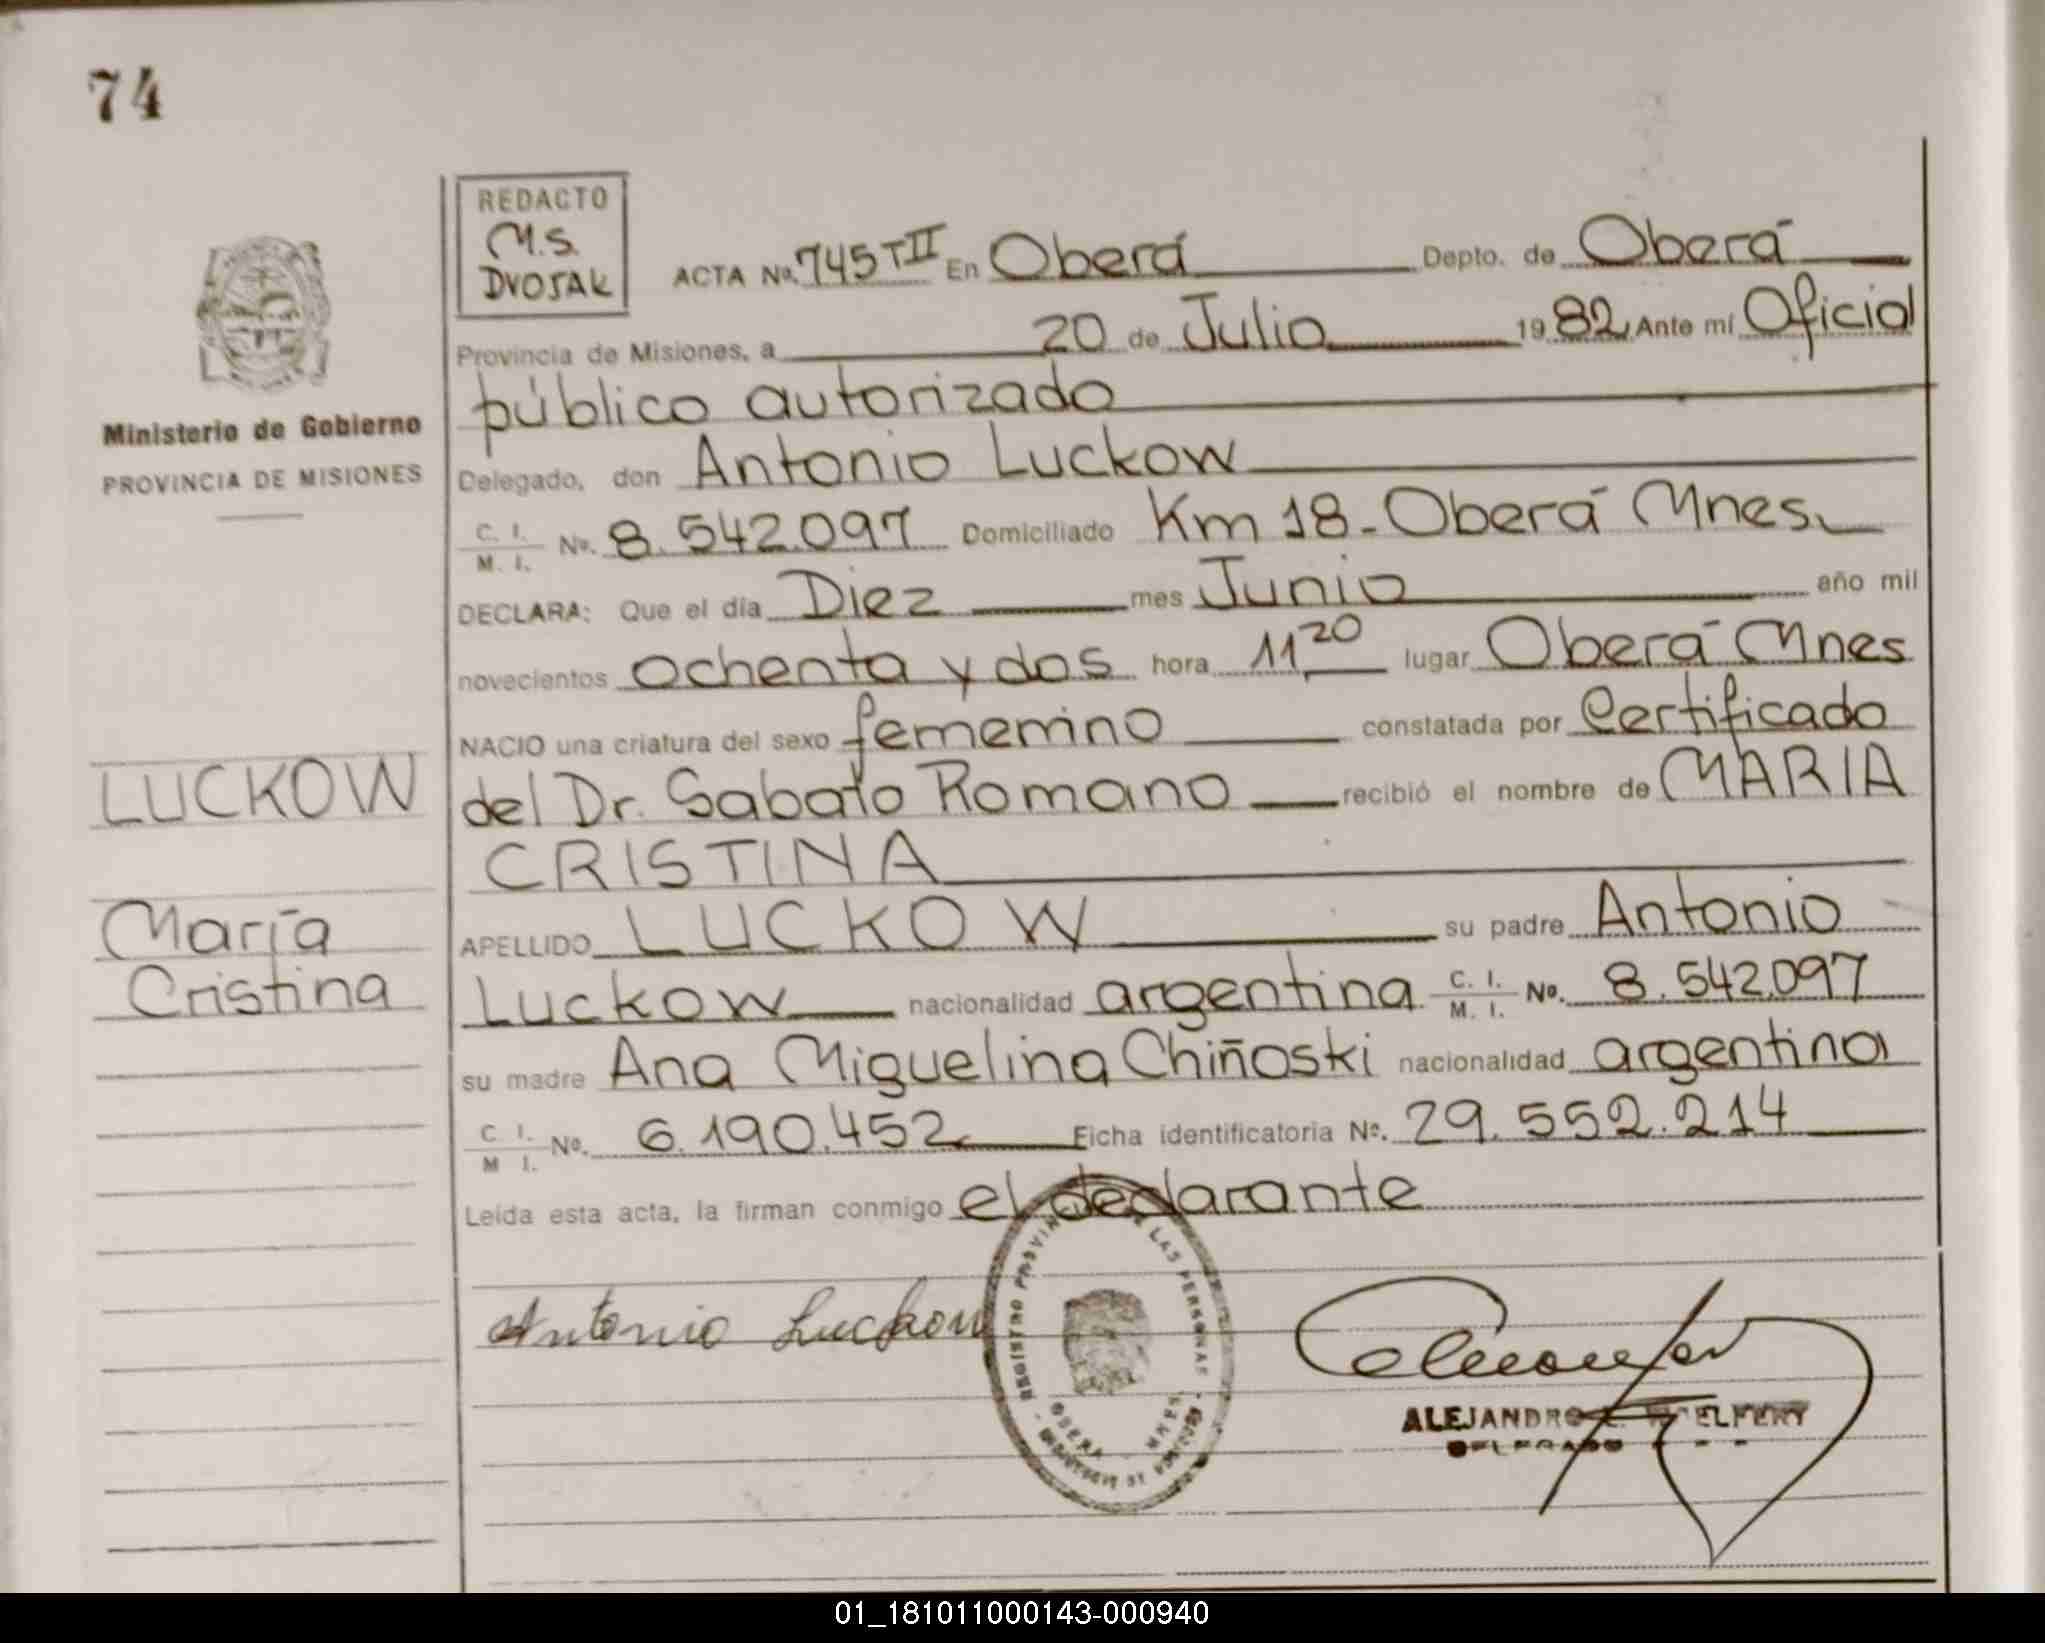 74
REDACTO
M.S.
DVORAK
ACTA No. 745 TII En Oberá Depto. de Oberá
Provincia de Misiones, a 20 de Julio 1982, Ante mí Oficial
público autorizado
Ministerio de Gobierno
PROVINCIA DE MISIONES
Delegado, don Antonio Luckow
C. I.
M. I. No. 8.542.097 Domiciliado Km 18 - Oberá Mnes.
DECLARA: Que el día Diez mes Junio año mil
novecientos ochenta y dos hora 11 20 lugar Oberá Mnes
NACIO una criatura del sexo femenino constatada por Certificado
LUCKOW
del Dr. Sabato Romano recibió el nombre de MARIA
CRISTINA
María
Cristina
APELLIDO LUCKOW su padre Antonio
Luckow nacionalidad argentina C. I.
M. I. No. 8.542.097
su madre Ana Miguelina Chiñoski nacionalidad argentina
C. I.
M I. No. 6.190.452 Ficha identificatoria No. 29.552.214
Leída esta acta, la firman conmigo el declarante
Antonio Luckow
REGISTRO PROVIN LAS PERSONAS
OBERA MNES
ALEJANDRO
DELEGADO
01_181011000143-000940